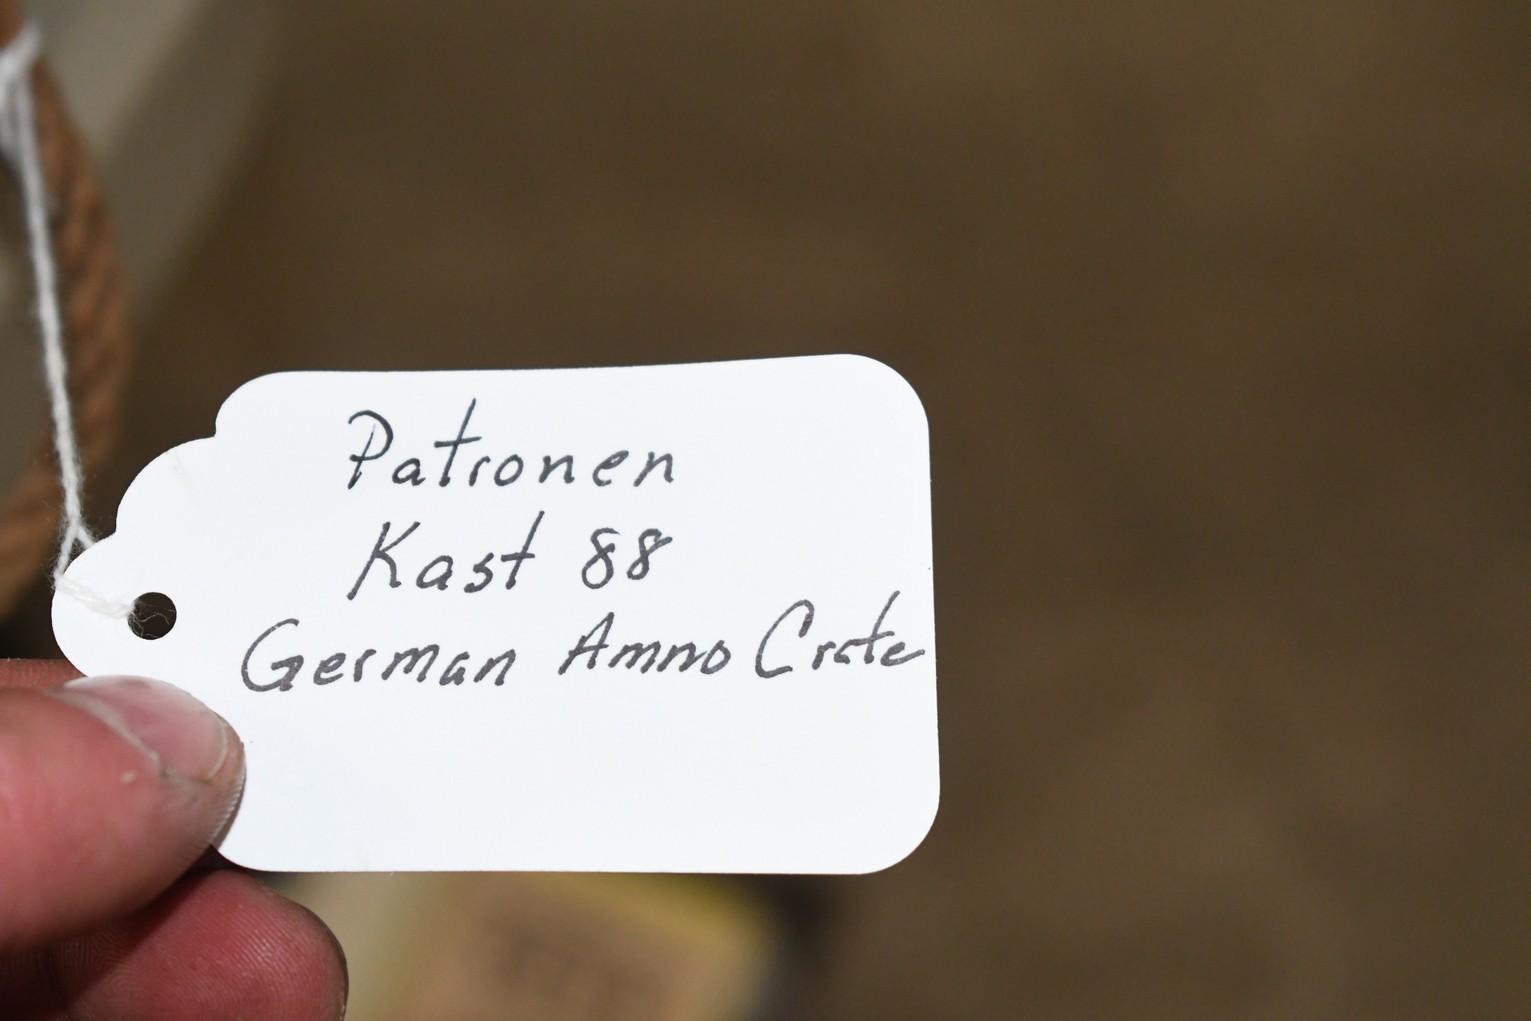 Patronen
Kast 88
German Ammo Crate